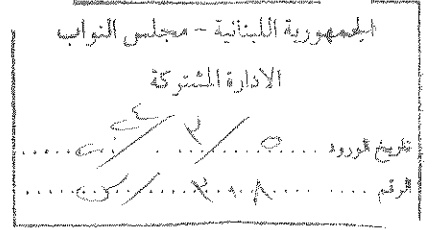 الجمهورية اللبنانية - مجلس النواب
الادارة المشتركة
تاريخ الورود ٥ / ٢ /
الرقم ٢٠٨ /